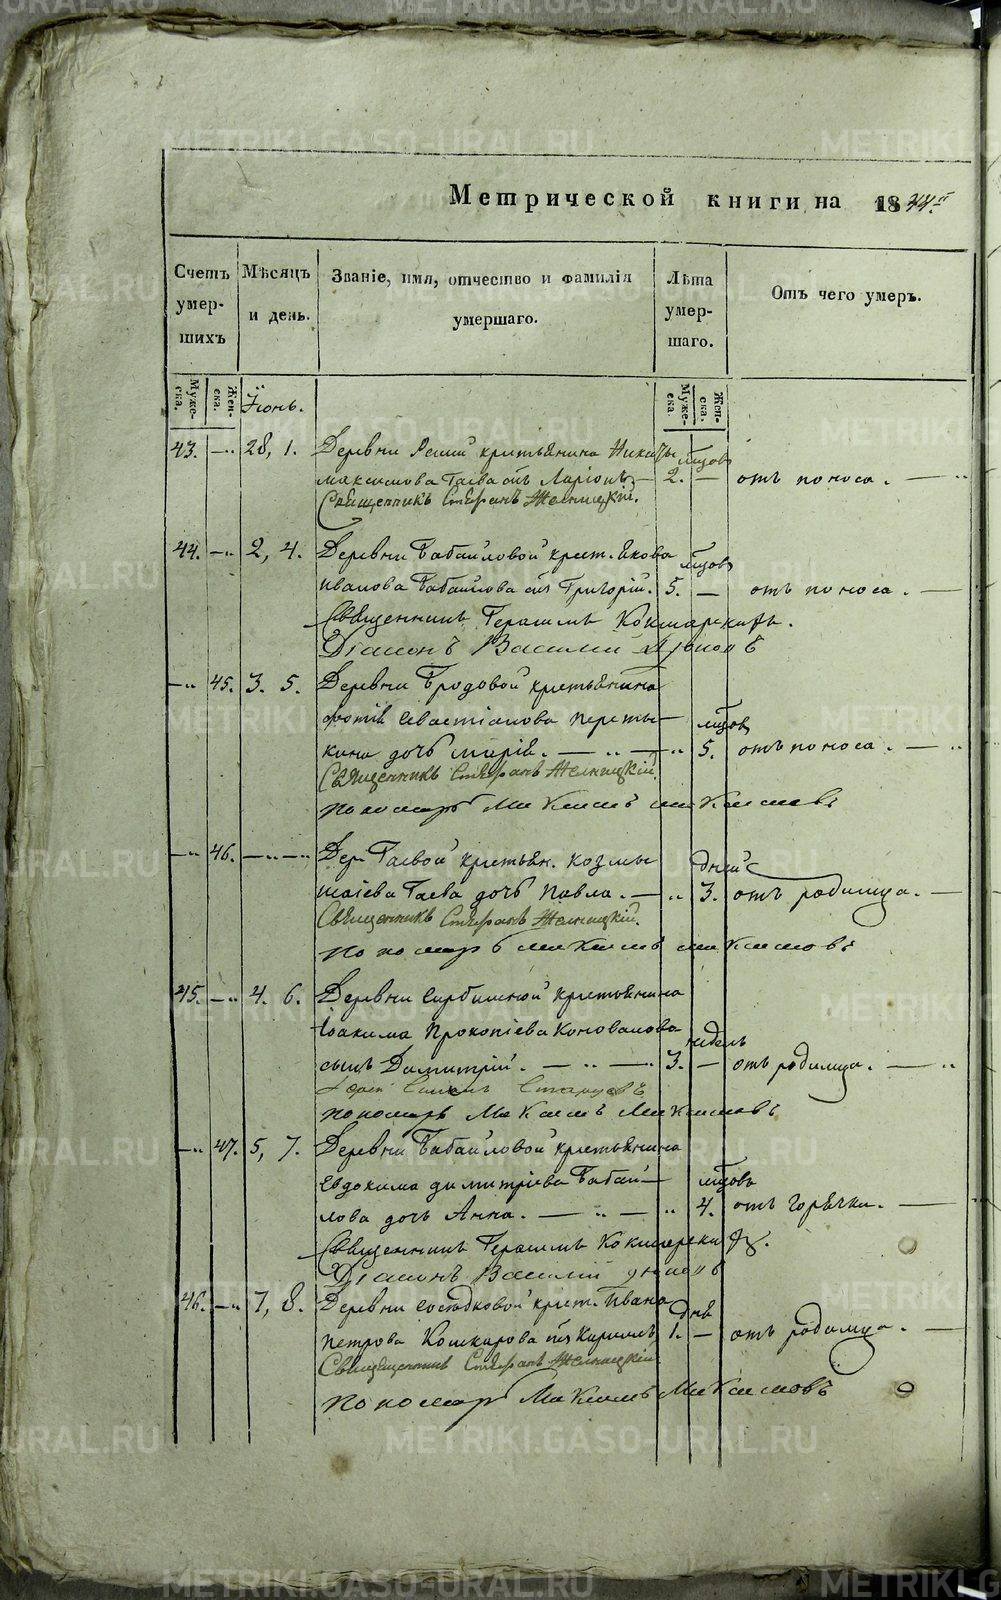 METRIKI.GASO-URAL.RU
Метрической книги на 1844й
Счетъ умер- шихъ
Мѣсяцъ и день.
Званіе, имя, отчество и фамилія умершаго.
Лѣта умер- шаго.
Отъ чего умеръ.
Муже- ска. Жен- ска.
Іюнь.
Муже- ска. Жен- ска.
43. — 28, 1. Деревни крестьянина Никиты лѣтъ
Максимова Гаева сынъ Ларіонъ — 2. — отъ поноса. —
Священникъ Стефанъ Желницкій.
44. — 2, 4. Деревни Бабаиловой крест. Якова
Иванова Бабаилова сынъ Григорій. 5. — отъ поноса. —
Священникъ Герасимъ Кокшарскихъ.
Діаконъ Василій
— 45. 3. 5. Деревни Бродовой крестьянина
Фотія Севастіанова Переты-
кина дочь Марія. — 5. отъ поноса. —
Священникъ Стефанъ Желницкій.
Пономарь Максимъ Максимовъ
— 46. — Дер. Гаевой крестьян. Козмы дней
Исаіева Гаева дочь Павла. — 3. отъ родимца. —
Священникъ Стефанъ Желницкій.
Пономарь Максимъ Максимовъ
45. — 4. 6. Деревни крестьянина
Іоакима Прокопіева Коновалова недель
сынъ Димитрій. — 3. — отъ родимца. —
Пономарь Максимъ Максимовъ
— 47. 5, 7. Деревни Бабаиловой крестьянина
Евдокима Димитріева Бабаи-
лова дочь Анна. — 4. отъ горячки. —
Священникъ Герасимъ Кокшарскихъ.
Діаконъ Василій
46. — 7, 8. Деревни Сосѣдковой крест. Ивана день
Петрова Кошкарова сынъ Кириллъ 1. — отъ родимца. —
Священникъ Стефанъ Желницкій
Пономарь Максимъ Максимовъ